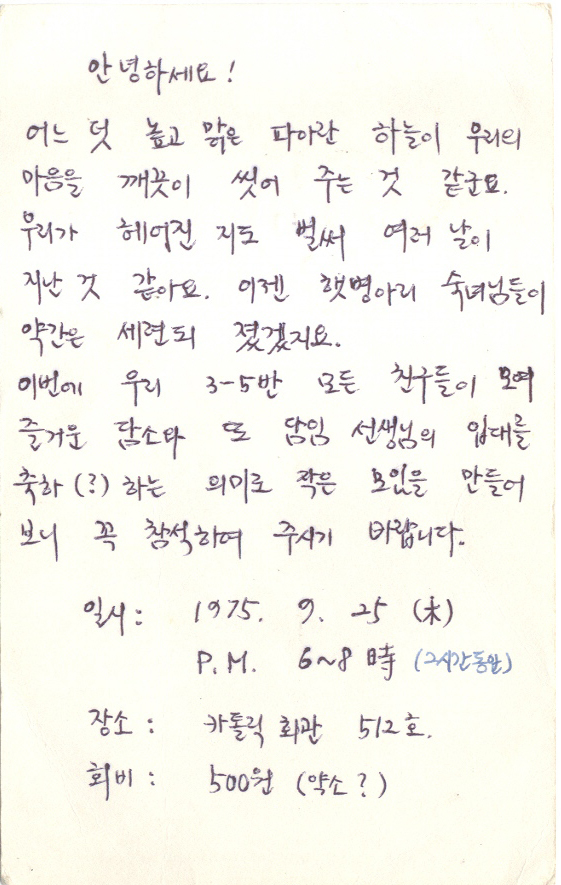 안녕하세요!
어느 덧 높고 맑은 파아란 하늘이 우리의
마음을 깨끗이 씻어 주는 것 같군요.
우리가 헤어진 지도 벌써 여러 날이
지난 것 같아요. 이젠 햇병아리 숙녀님들이
약간은 세련되 졌겠지요.
이번에 우리 3-5반 모든 친구들이 모여
즐거운 담소와 또 담임 선생님의 입대를
축하(?)하는 의미로 작은 모임을 만들어
보니 꼭 참석하여 주시기 바랍니다.
일시: 1975. 9. 25 (木)
P.M. 6~8 時 (2시간동안)
장소: 카톨릭 회관 512호.
회비: 500원 (약소?)